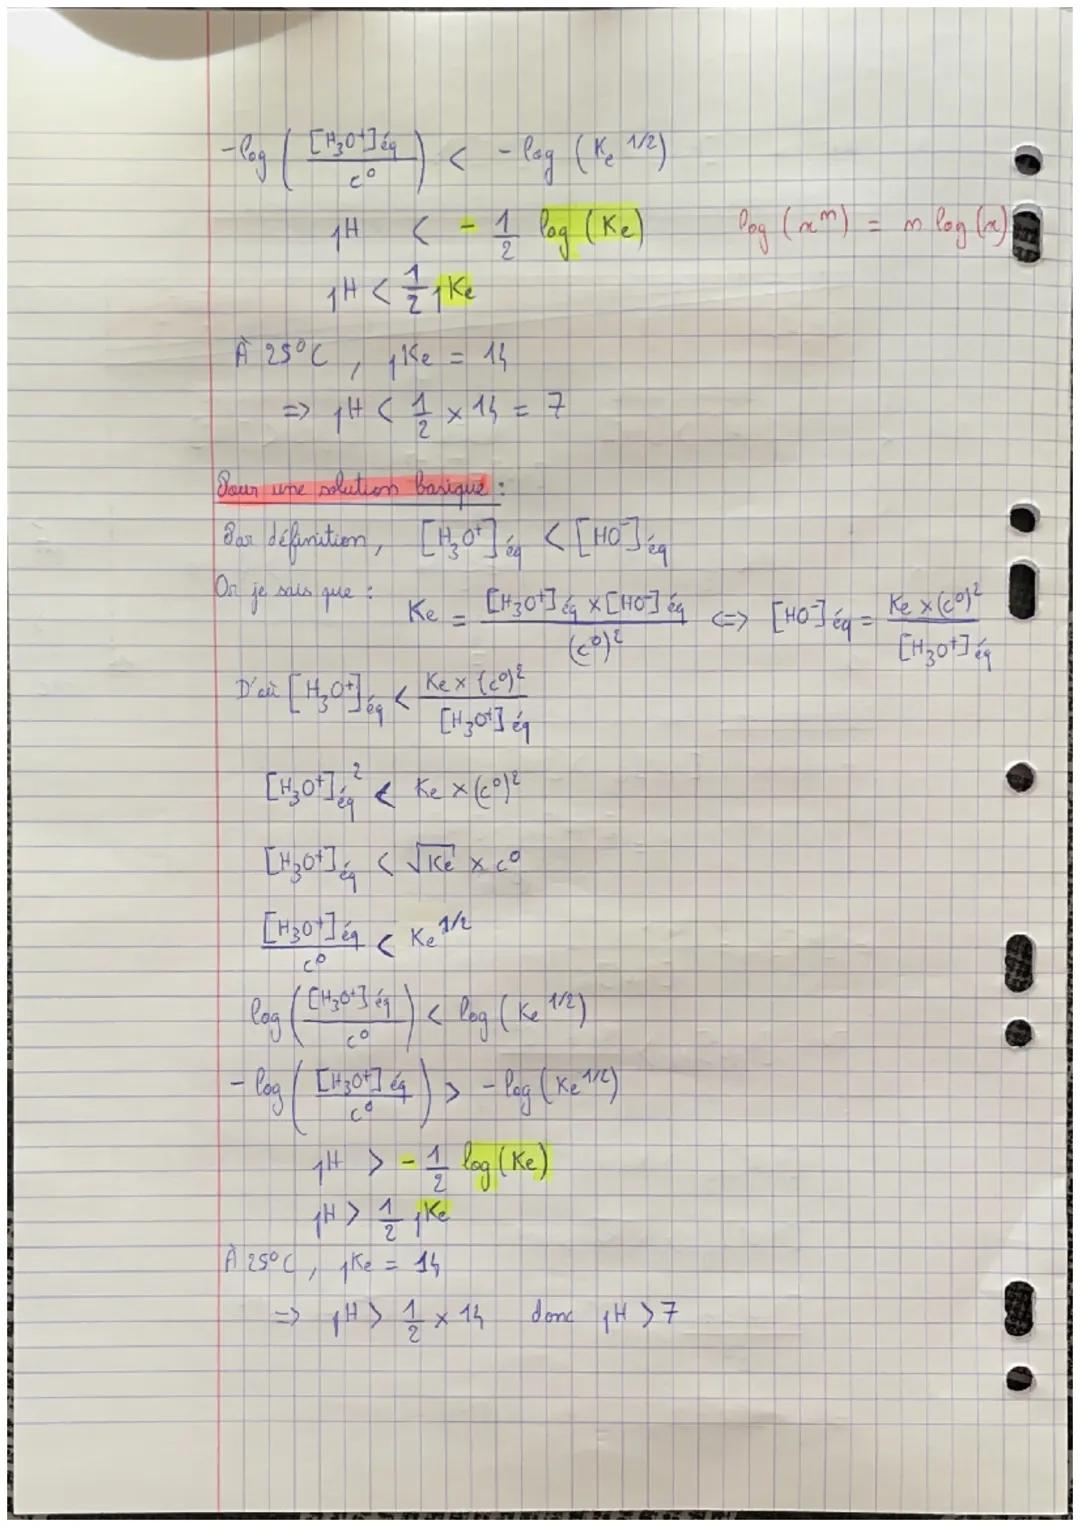 -log ( [H₃O⁺]éq / c⁰ ) < - log (Ke^1/2)
pH < - 1/2 log (Ke)   log (xⁿ) = n log (x)
pH < 1/2 pKe
À 25°C, pKe = 14
=> pH < 1/2 × 14 = 7
Pour une solution basique :
Par définition, [H₃O⁺]éq < [HO⁻]éq
Or je sais que : Ke = [H₃O⁺]éq × [HO⁻]éq / (c⁰)² <=> [HO⁻]éq = Ke × (c⁰)² / [H₃O⁺]éq
D'où [H₃O⁺]éq < Ke × (c⁰)² / [H₃O⁺]éq
[H₃O⁺]éq² < Ke × (c⁰)²
[H₃O⁺]éq < √Ke × c⁰
[H₃O⁺]éq / c⁰ < Ke^1/2
log ( [H₃O⁺]éq / c⁰ ) < log (Ke^1/2)
- log ( [H₃O⁺]éq / c⁰ ) > - log (Ke^1/2)
pH > - 1/2 log (Ke)
pH > 1/2 pKe
À 25°C, pKe = 14
=> pH > 1/2 × 14 donc pH > 7